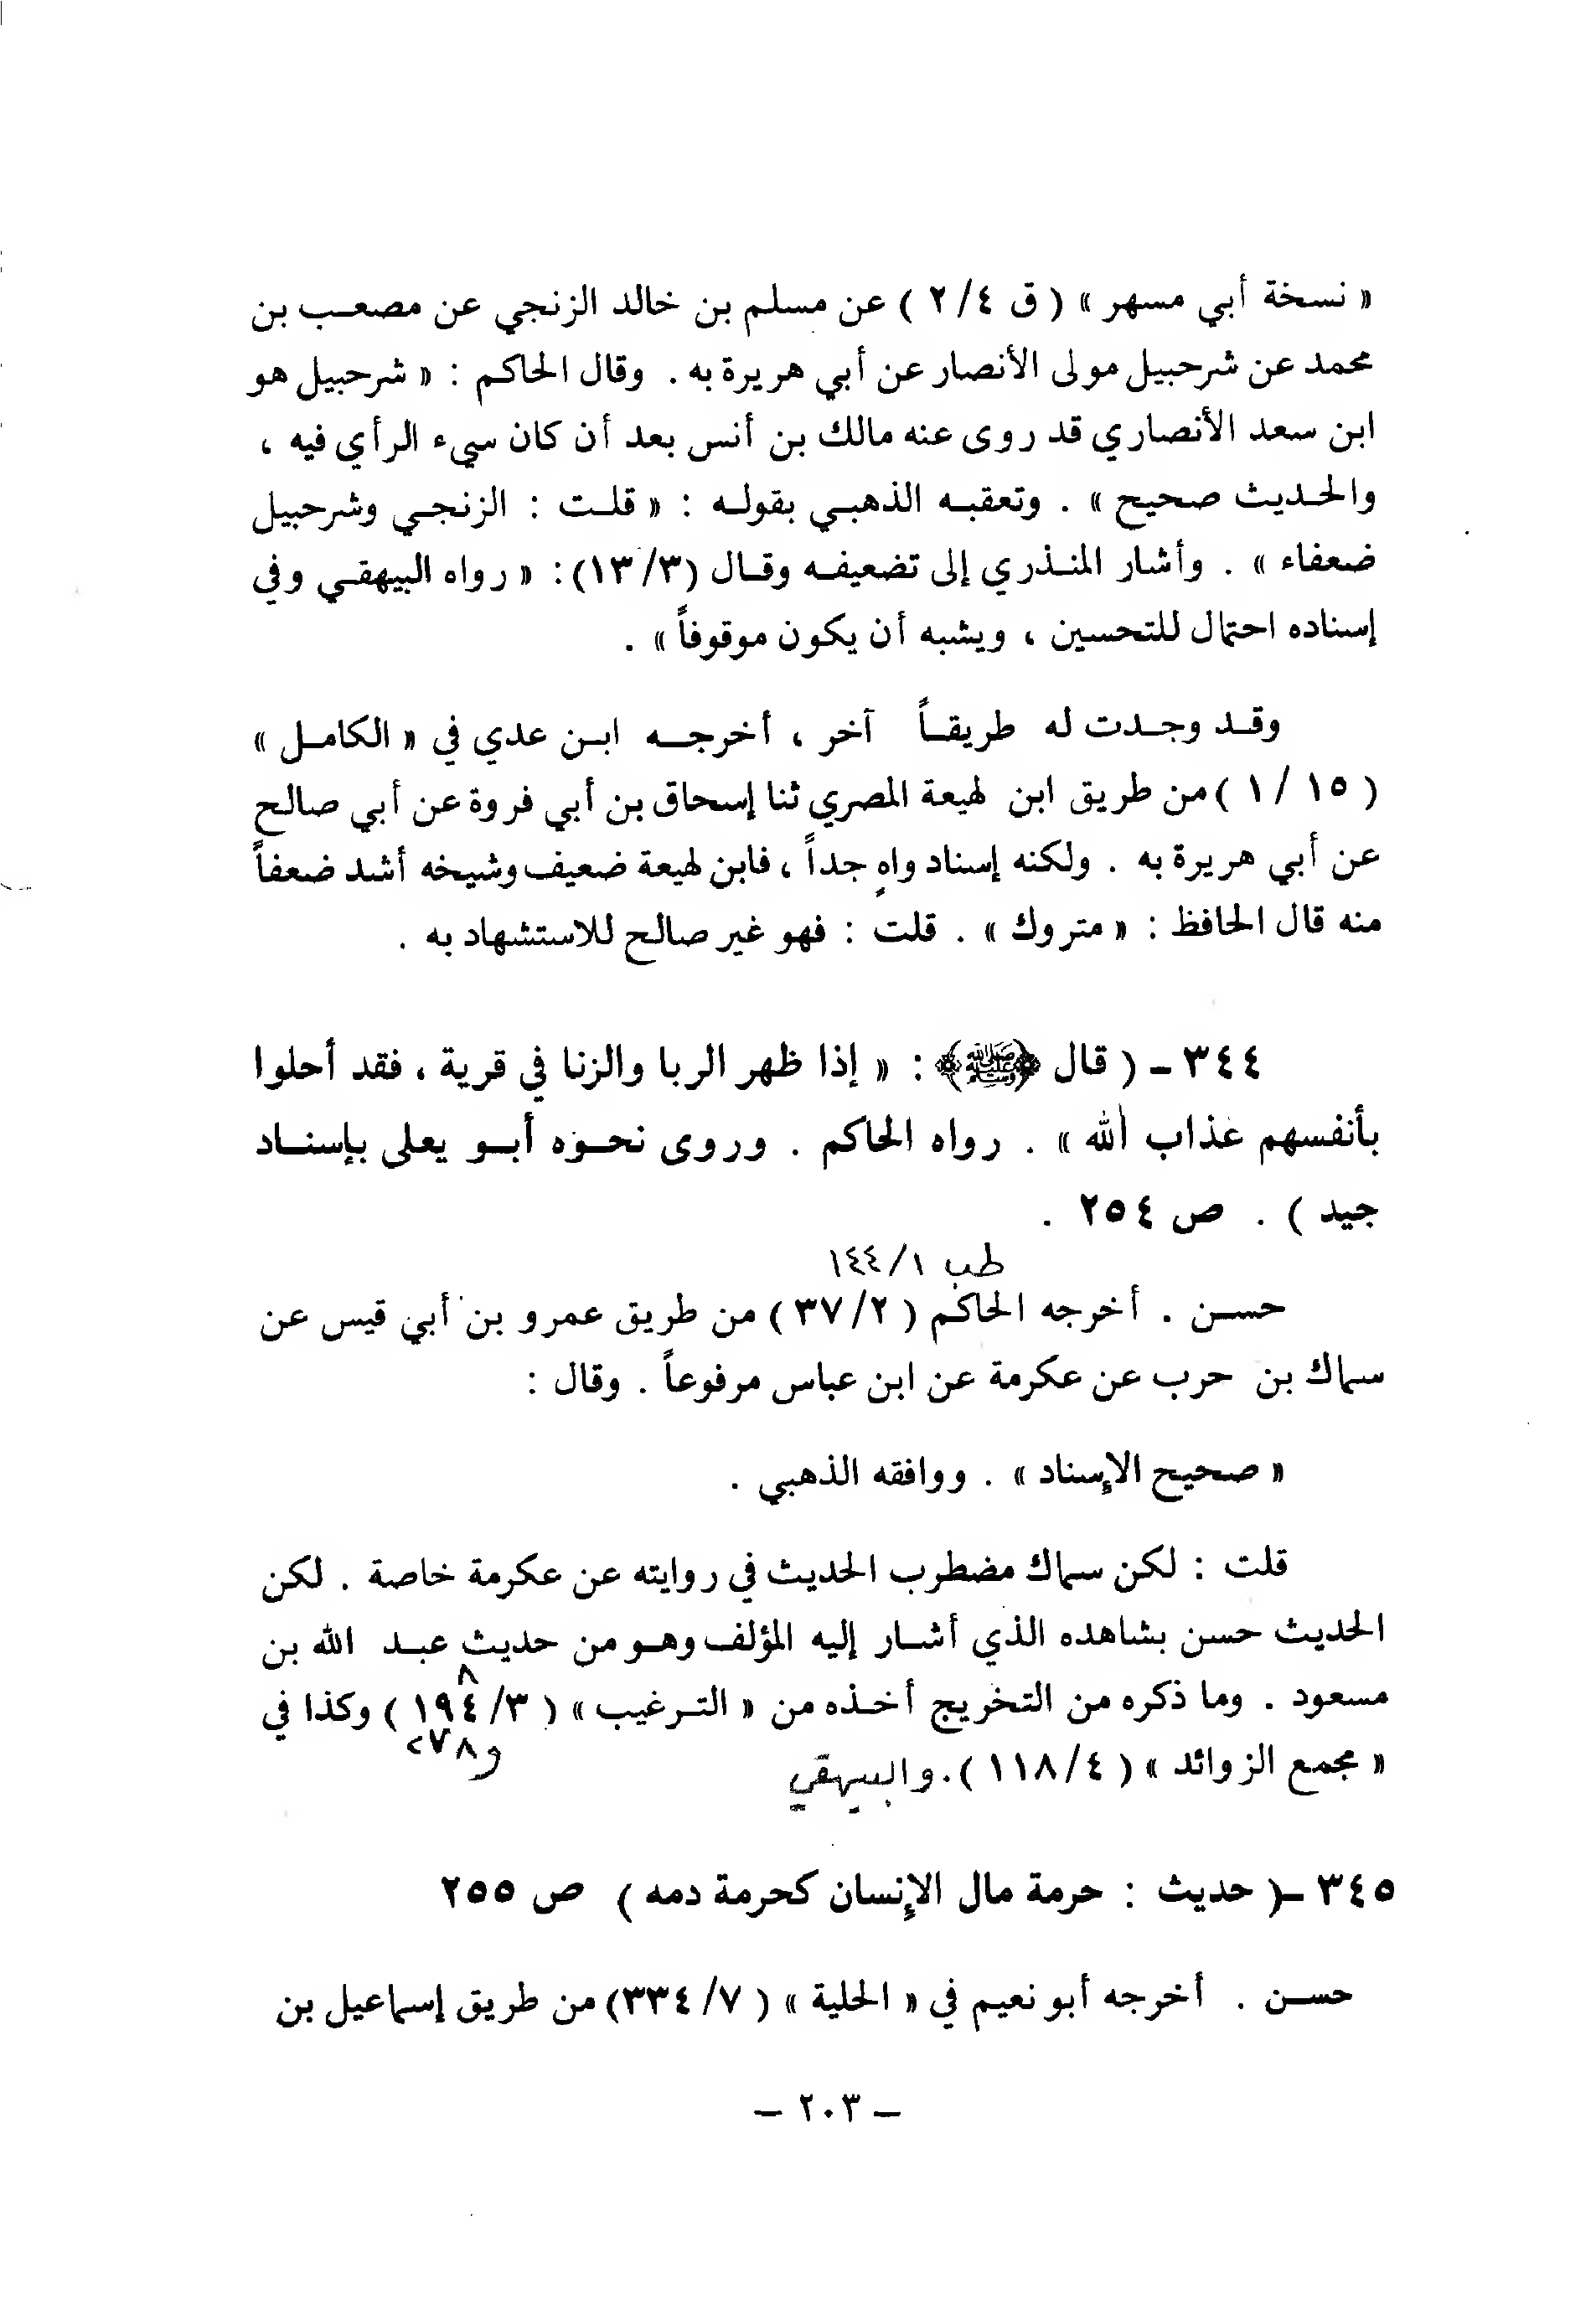 « نسخة أبي مسهر » ( ق ٤/ ٢ ) عن مسلم بن خالد الزنجي عن مصعب بن
محمد عن شرحبيل مولى الأنصار عن أبي هريرة به . وقال الحاكم : « شرحبيل هو
ابن سعد الأنصاري قد روى عنه مالك بن أنس بعد أن كان سيء الرأي فيه ،
والحديث صحيح » . وتعقبه الذهبي بقوله : « قلت : الزنجي وشرحبيل
ضعفاء » . وأشار المنذري إلى تضعيفه وقال (٣/ ١٣) : « رواه البيهقي وفي
إسناده احتمال للتحسين ، ويشبه أن يكون موقوفاً » .
وقد وجدت له طريقاً آخر ، أخرجه ابن عدي في « الكامل »
( ١٥ / ١ ) من طريق ابن لهيعة المصري ثنا إسحاق بن أبي فروة عن أبي صالح
عن أبي هريرة به . ولكنه إسناد واهٍ جداً ، فابن لهيعة ضعيف وشيخه أشد ضعفاً
منه قال الحافظ : « متروك » . قلت : فهو غير صالح للاستشهاد به .
٣٤٤ - ( قال ﷺ : « إذا ظهر الربا والزنا في قرية ، فقد أحلوا
بأنفسهم عذاب الله » . رواه الحاكم . وروى نحوه أبو يعلى بإسناد
جيد ) . ص ٢٥٤ .
طب ١/ ١٤٤
حسن . أخرجه الحاكم ( ٢/ ٣٧ ) من طريق عمرو بن أبي قيس عن
سماك بن حرب عن عكرمة عن ابن عباس مرفوعاً . وقال :
« صحيح الإسناد » . ووافقه الذهبي .
قلت : لكن سماك مضطرب الحديث في روايته عن عكرمة خاصة . لكن
الحديث حسن بشاهده الذي أشار إليه المؤلف وهو من حديث عبد الله بن
٨
مسعود . وما ذكره من التخريج أخذه من « الترغيب » ( ٣/ ١٩٤ ) وكذا في
و٢٧٨
« مجمع الزوائد » ( ٤/ ١١٨ ) . والبيهقي
٣٤٥ - ( حديث : حرمة مال الإنسان كحرمة دمه ) ص ٢٥٥
حسن . أخرجه أبو نعيم في « الحلية » ( ٧/ ٣٣٤) من طريق إسماعيل بن
- ٢٠٣ -